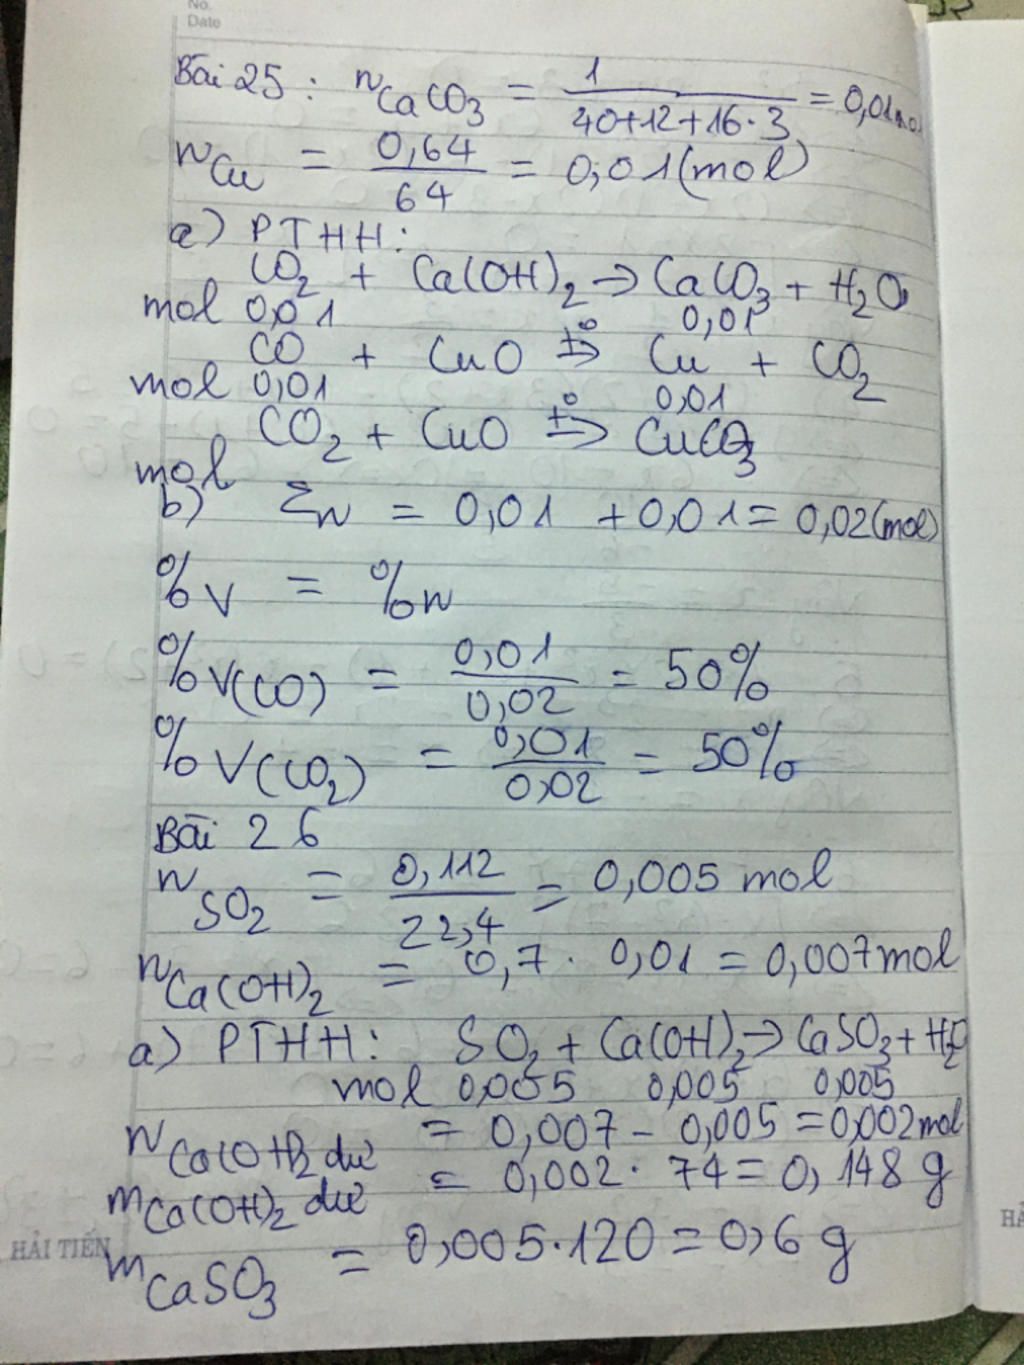 No.
Date
Bài 25 : nCaCO3 = 1 / (40+12+16.3) = 0,01mol
nCu = 0,64 / 64 = 0,01(mol)
a) PTHH :
CO2 + Ca(OH)2 → CaCO3 + H2O
mol 0,01 0,01
CO + CuO t° → Cu + CO2
mol 0,01 0,01
CO2 + CuO t° → CuCO3
mol
b) Σn = 0,01 + 0,01 = 0,02(mol)
%V = %n
%V(CO) = 0,01 / 0,02 = 50%
%V(CO2) = 0,01 / 0,02 = 50%
Bài 26
nSO2 = 0,112 / 22,4 = 0,005 mol
nCa(OH)2 = 0,7 . 0,01 = 0,007mol
a) PTHH : SO2 + Ca(OH)2 → CaSO3 + H2O
mol 0,005 0,005 0,005
nCa(OH)2 dư = 0,007 - 0,005 = 0,002mol
mCa(OH)2 dư = 0,002 . 74 = 0,148 g
mCaSO3 = 0,005.120 = 0,6 g
HẢI TIẾN